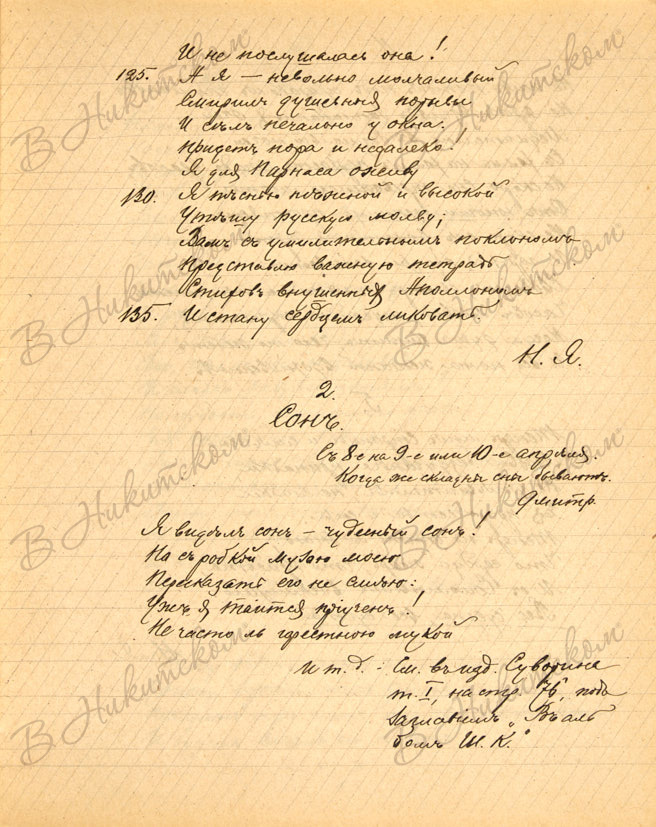 И не послушалась она!
125. А я — невольно молчаливый
Смирилъ душевныя порывы
И сѣлъ печально у окна.
Придетъ пора и недалеко!
Я для Парнаса оживу
130. Я пѣснью нѣжной и высокой
Утѣшу русскую молву;
Вамъ съ умилительнымъ поклономъ
Представлю важную тетрадь
Стиховъ внушенныя Аполлономъ
135. И стану сердцемъ ликовать.
Н. Я.
2.
Сонъ.
Съ 8-е на 9-е или 10-е апрѣля.
Когда же складны сны бываютъ.
Дмитр.
Я видѣлъ сонъ — чудесный сонъ!
Но съ робкой музою моею
Пересказать его не смѣю:
Ужъ я таиться пріученъ!
Не часто ль горестною мукой
и т. д. См. въ изд. Суворина
т. I, на стр. 76, подъ
заглавіемъ „Въ аль
бомъ Ш. К."
В Никитском
В Никитском
В Никитском
В Никитском
В Никитском
В Никитском
В Никитском
В Никитском